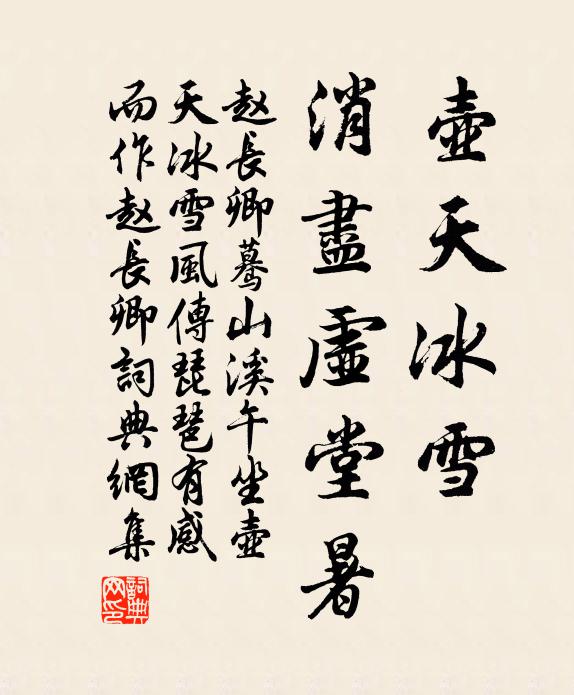 壺天冰雪
消盡虛堂暑
赵長卿驀山溪午坐壺
天冰雪風傳琵琶有感
而作赵長卿詞典網集
詞典
网印